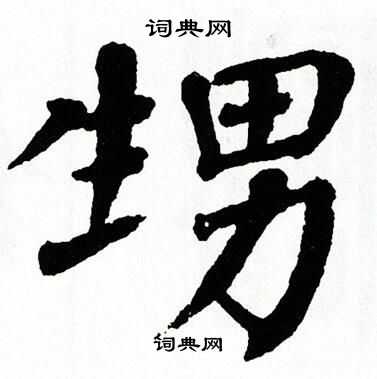 词典网
甥
词典网